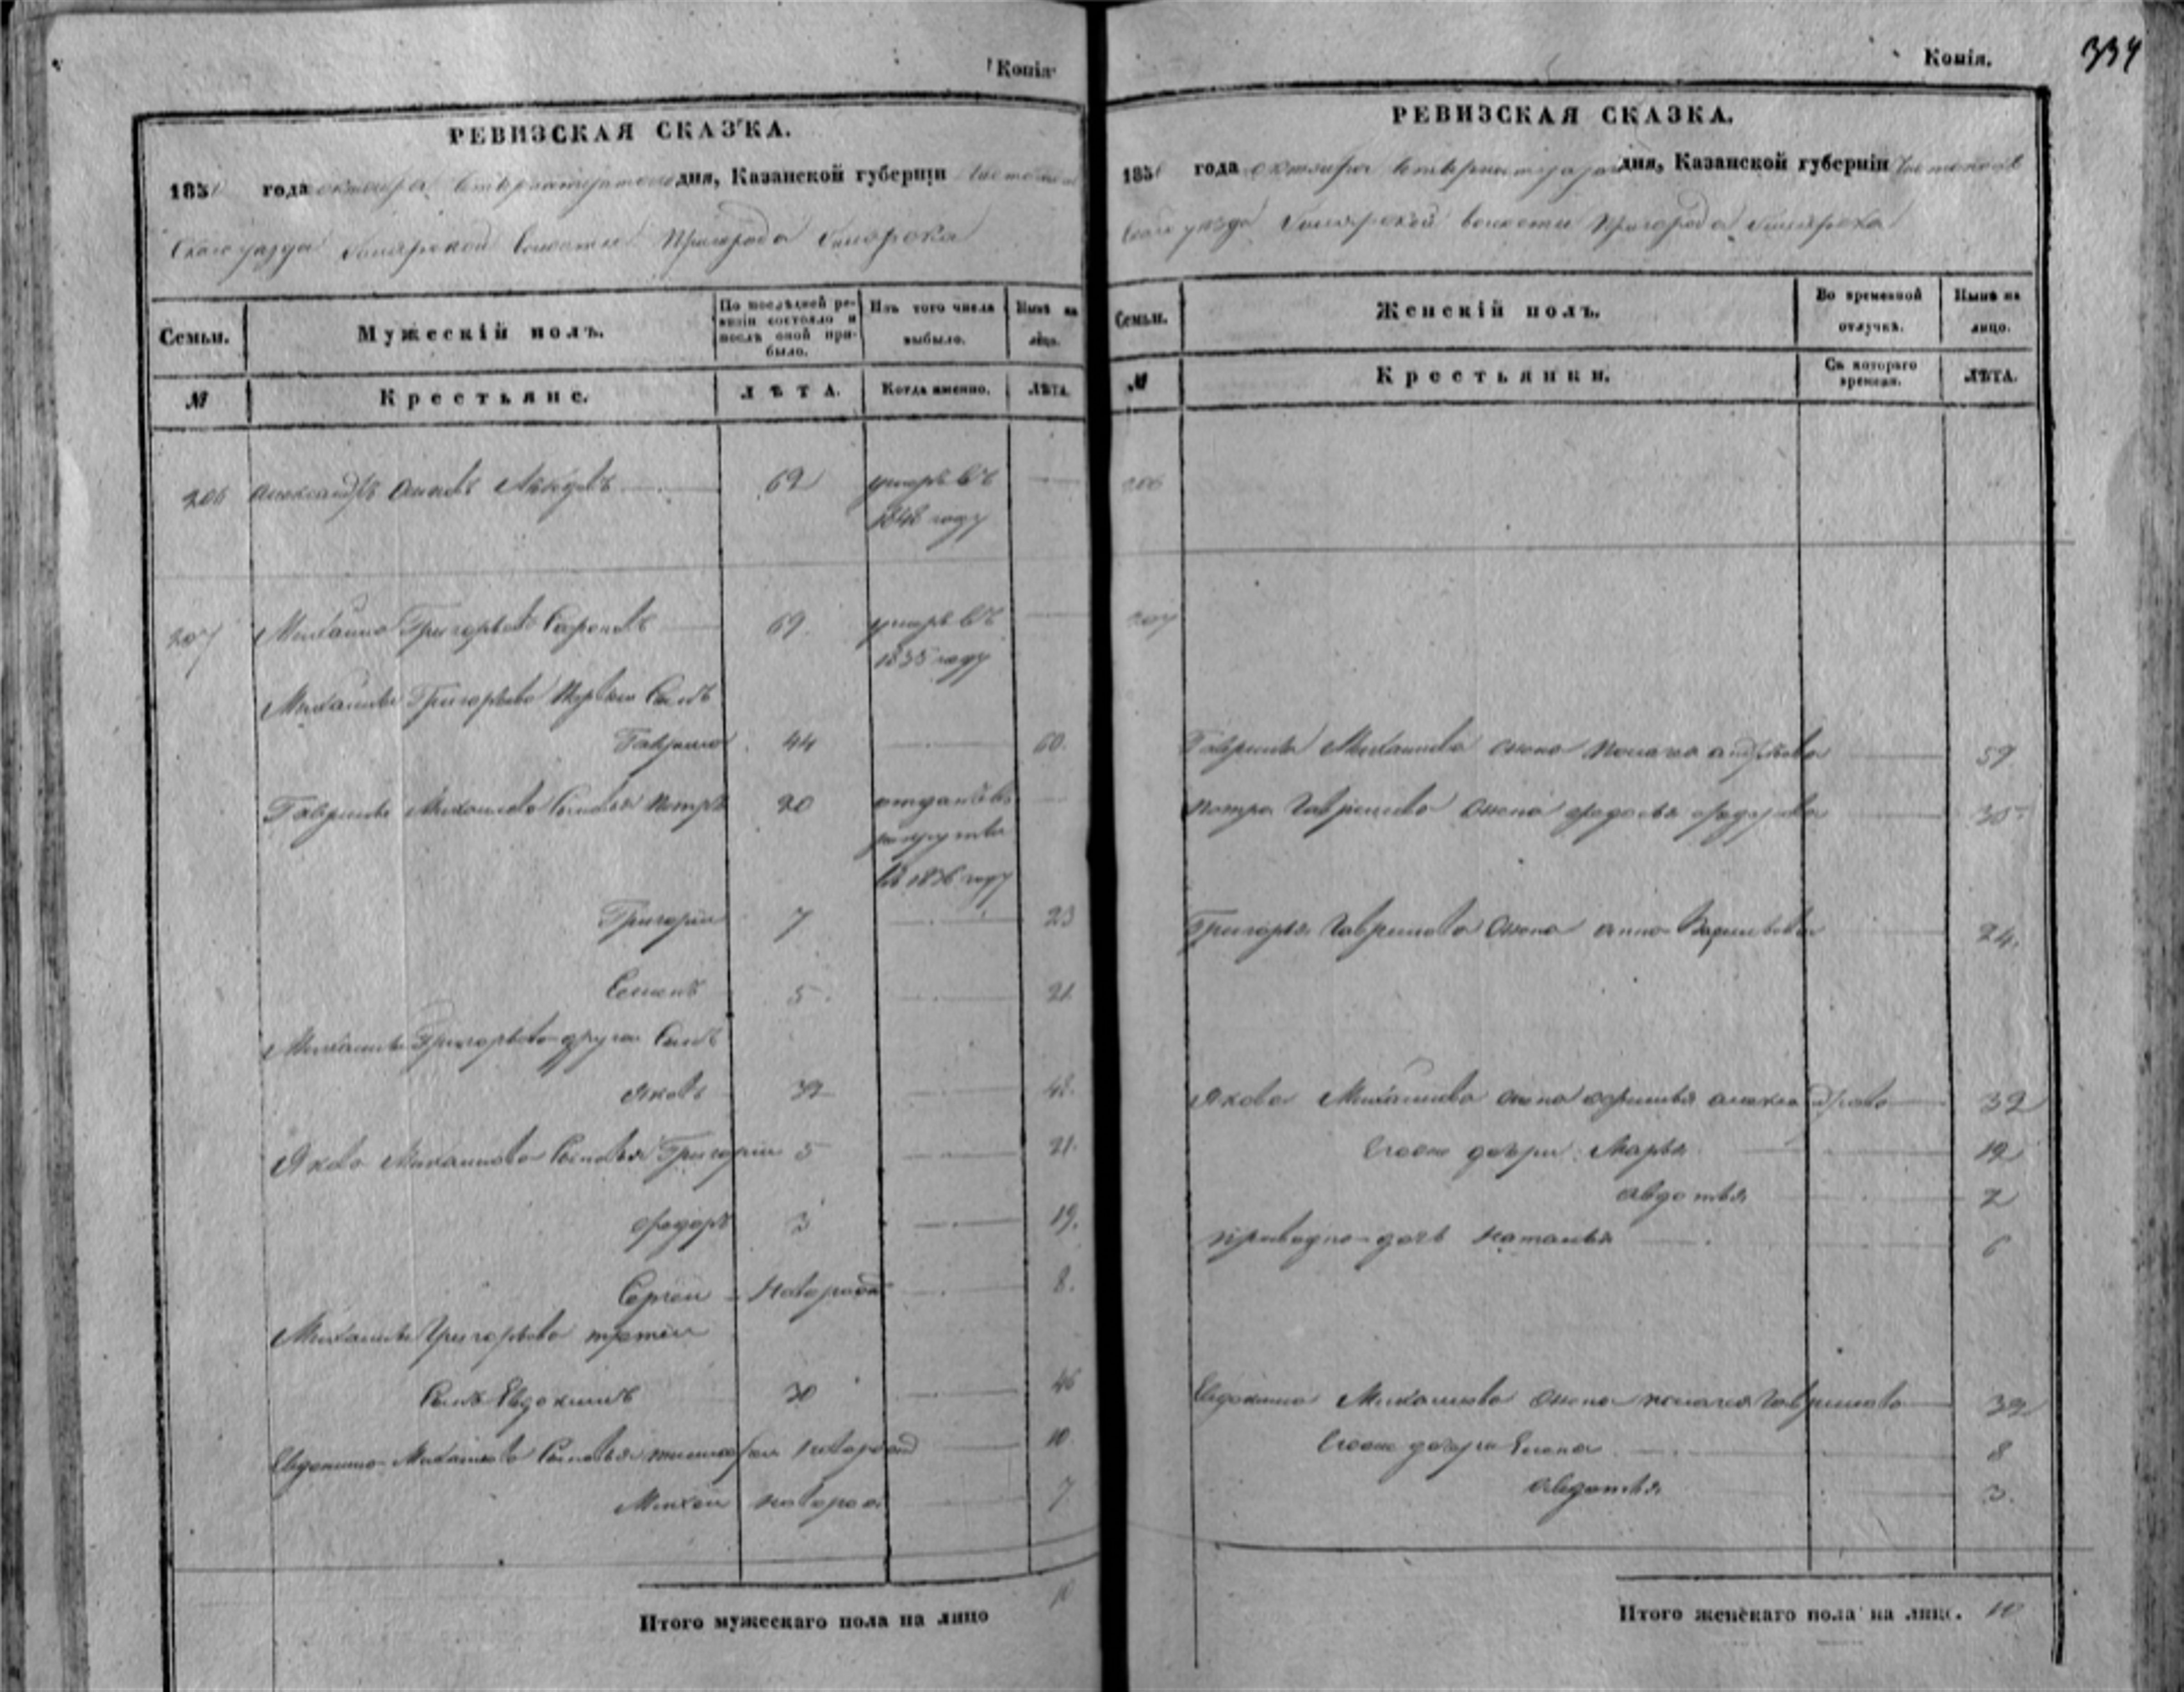 Копія
РЕВИЗСКАЯ СКАЗКА.
1850 года октября дня, Казанской губерніи
скаго уѣзда Билярской волости Пригорода Билярска
Семьи.
Мужескій полъ.
По послѣдней ревизіи состояло и послѣ оной прибыло.
Изъ того числа выбыло.
Нынѣ на лицо.
№
Крестьяне.
ЛѢТА.
Когда именно.
ЛѢТА.
206 Александръ 62 умръ въ
1848 году
207 Михаило Григорьевъ 69 умръ въ
1835 году
Михаилы Григорьева первый сынъ
Гаврило 44 60.
Гаврилы Михаилова сыновья Петръ 20 отданъ въ
рекрутъ
въ 1836 году
Григорій 7 23
Семенъ 5 21
Михаилы Григорьева другой сынъ
Яковъ 32 48.
Якова Михаилова сыновья Григорій 5 21.
Федоръ 3 19.
Сергей новорожд 8.
Михаилы Григорьева третій
сынъ Евдокимъ 30 46
Евдокима Михаилова сыновья новорожд 10
Михей новорож 7
Итого мужескаго пола на лицо 10
Копія.
334
РЕВИЗСКАЯ СКАЗКА.
1850 года октября дня, Казанской губерніи
скаго уѣзда Билярской волости Пригорода Билярска
Семьи.
Женскій полъ.
Во временной отлучкѣ.
Нынѣ на лицо.
№
Крестьянки.
Съ котораго времени.
ЛѢТА.
206
207
Гаврилы Михаилова жена андреева 59
Петра Гаврилова жена федосья федорова 35
Григорья Гаврилова жена анна Васильева 24.
Якова Михаилова жена 39
дочери Марья 12
авдотья 2
дочь наталья 6
Евдокима Михаилова жена Гаврилова 39
дочери Елена 8
авдотья 3.
Итого женскаго пола на лицо. 10